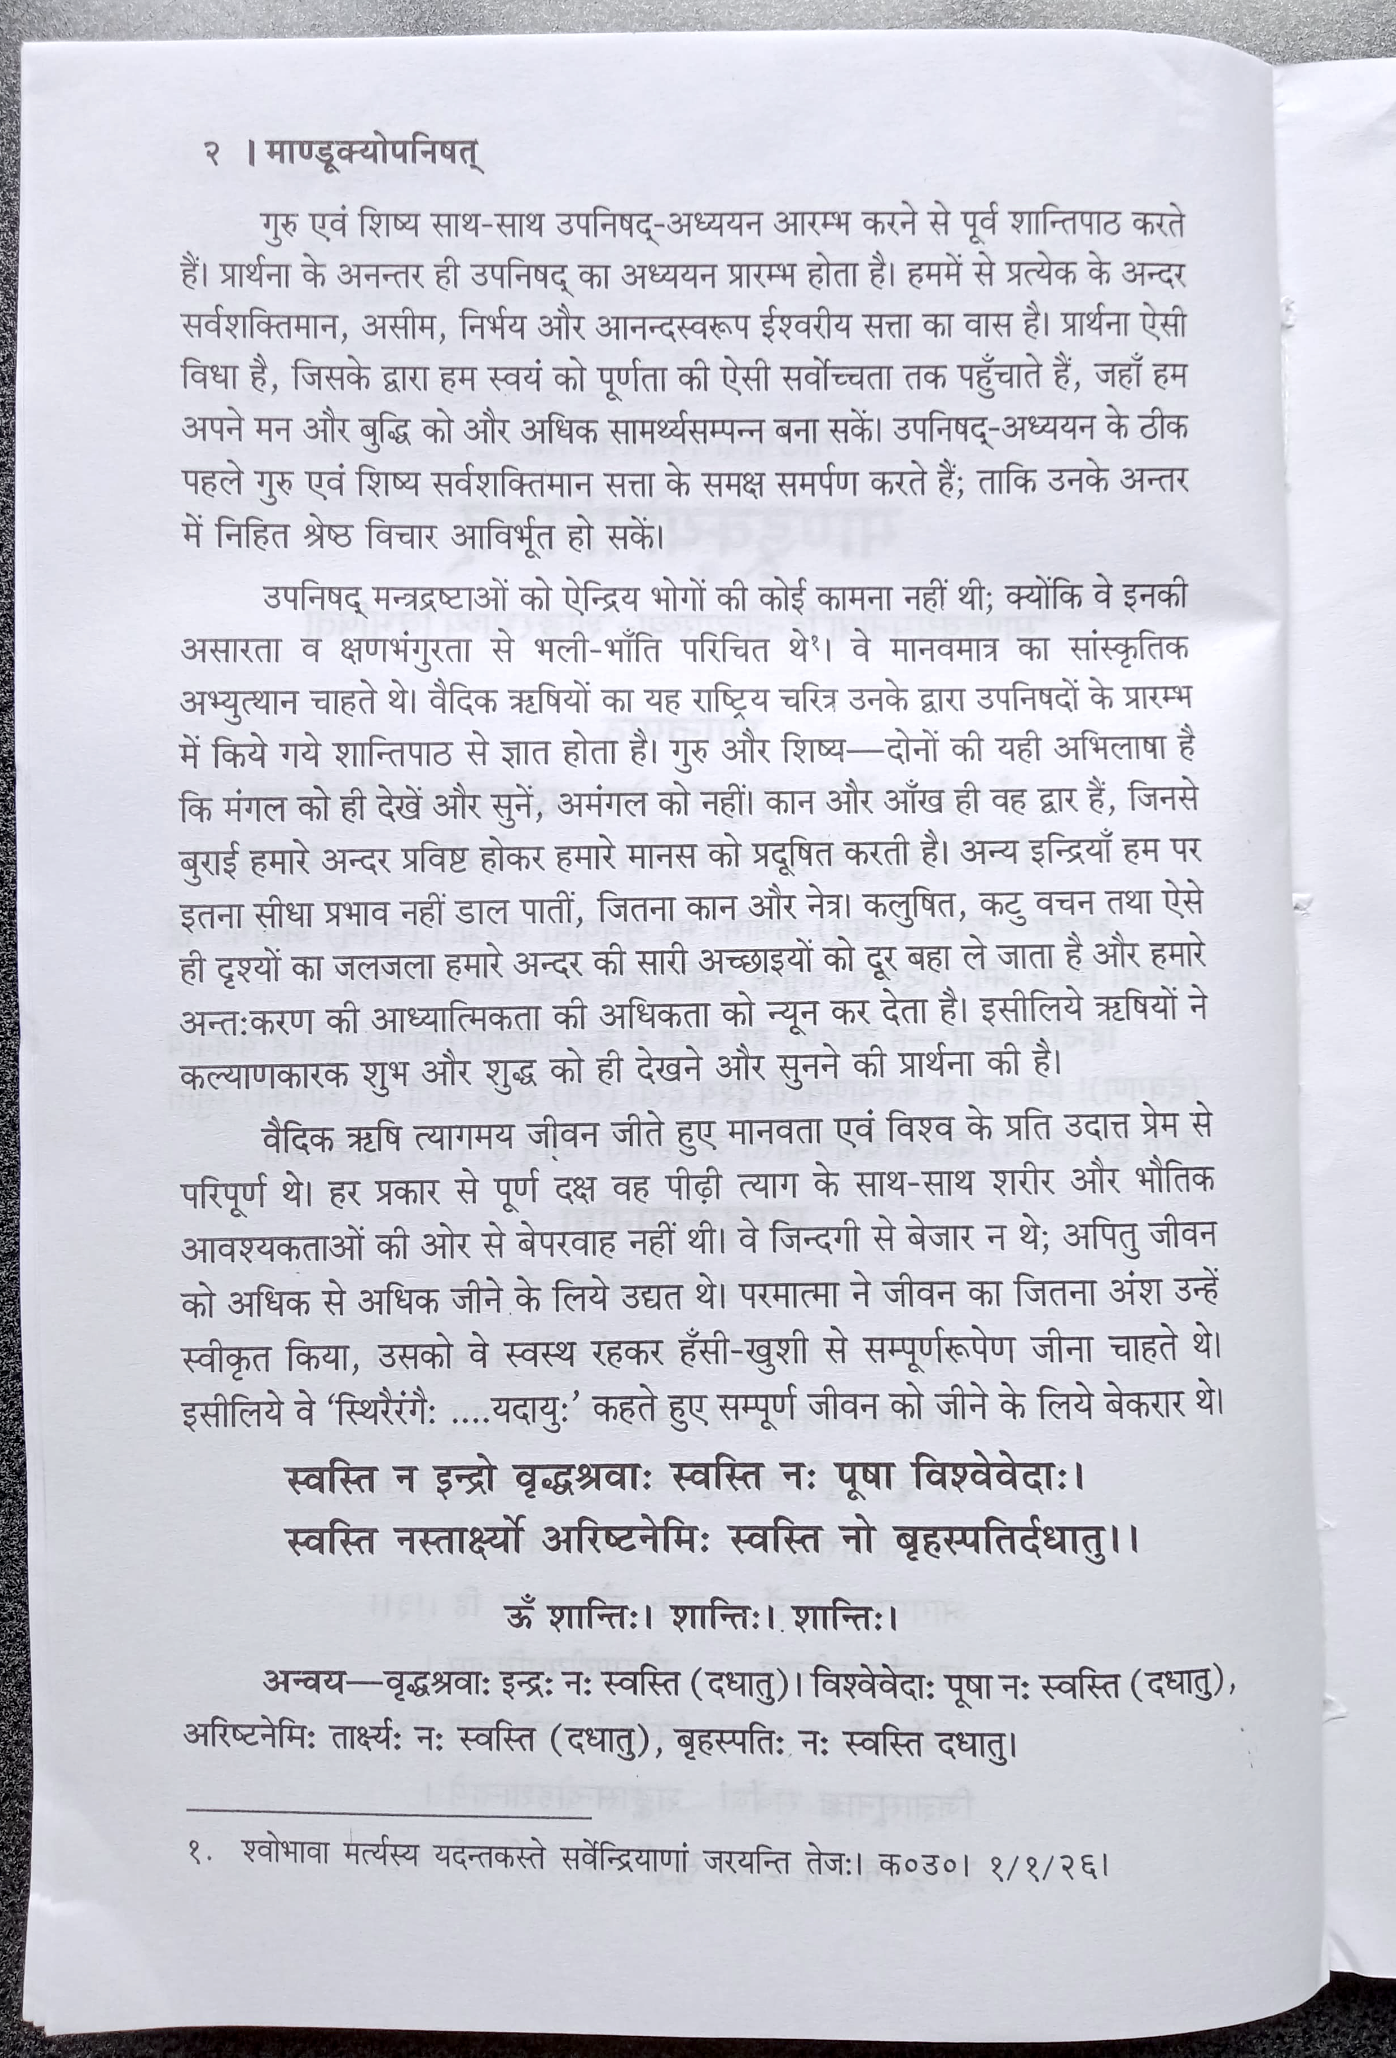 २ । माण्डूक्योपनिषत्
गुरु एवं शिष्य साथ-साथ उपनिषद्-अध्ययन आरम्भ करने से पूर्व शान्तिपाठ करते
हैं। प्रार्थना के अनन्तर ही उपनिषद् का अध्ययन प्रारम्भ होता है। हममें से प्रत्येक के अन्दर
सर्वशक्तिमान, असीम, निर्भय और आनन्दस्वरूप ईश्वरीय सत्ता का वास है। प्रार्थना ऐसी
विधा है, जिसके द्वारा हम स्वयं को पूर्णता की ऐसी सर्वोच्चता तक पहुँचाते हैं, जहाँ हम
अपने मन और बुद्धि को और अधिक सामर्थ्यसम्पन्न बना सकें। उपनिषद्-अध्ययन के ठीक
पहले गुरु एवं शिष्य सर्वशक्तिमान सत्ता के समक्ष समर्पण करते हैं; ताकि उनके अन्तर
में निहित श्रेष्ठ विचार आविर्भूत हो सकें।
उपनिषद् मन्त्रद्रष्टाओं को ऐन्द्रिय भोगों की कोई कामना नहीं थी; क्योंकि वे इनकी
असारता व क्षणभंगुरता से भली-भाँति परिचित थे१। वे मानवमात्र का सांस्कृतिक
अभ्युत्थान चाहते थे। वैदिक ऋषियों का यह राष्ट्रिय चरित्र उनके द्वारा उपनिषदों के प्रारम्भ
में किये गये शान्तिपाठ से ज्ञात होता है। गुरु और शिष्य—दोनों की यही अभिलाषा है
कि मंगल को ही देखें और सुनें, अमंगल को नहीं। कान और आँख ही वह द्वार हैं, जिनसे
बुराई हमारे अन्दर प्रविष्ट होकर हमारे मानस को प्रदूषित करती है। अन्य इन्द्रियाँ हम पर
इतना सीधा प्रभाव नहीं डाल पातीं, जितना कान और नेत्र। कलुषित, कटु वचन तथा ऐसे
ही दृश्यों का जलजला हमारे अन्दर की सारी अच्छाइयों को दूर बहा ले जाता है और हमारे
अन्तःकरण की आध्यात्मिकता की अधिकता को न्यून कर देता है। इसीलिये ऋषियों ने
कल्याणकारक शुभ और शुद्ध को ही देखने और सुनने की प्रार्थना की है।
वैदिक ऋषि त्यागमय जीवन जीते हुए मानवता एवं विश्व के प्रति उदात्त प्रेम से
परिपूर्ण थे। हर प्रकार से पूर्ण दक्ष वह पीढ़ी त्याग के साथ-साथ शरीर और भौतिक
आवश्यकताओं की ओर से बेपरवाह नहीं थी। वे जिन्दगी से बेजार न थे; अपितु जीवन
को अधिक से अधिक जीने के लिये उद्यत थे। परमात्मा ने जीवन का जितना अंश उन्हें
स्वीकृत किया, उसको वे स्वस्थ रहकर हँसी-खुशी से सम्पूर्णरूपेण जीना चाहते थे।
इसीलिये वे ‘स्थिरैरंगैः ....यदायुः’ कहते हुए सम्पूर्ण जीवन को जीने के लिये बेकरार थे।
स्वस्ति न इन्द्रो वृद्धश्रवाः स्वस्ति नः पूषा विश्वेवेदाः।
स्वस्ति नस्तार्क्ष्यो अरिष्टनेमिः स्वस्ति नो बृहस्पतिर्दधातु।।
ऊँ शान्तिः। शान्तिः। शान्तिः।
अन्वय—वृद्धश्रवाः इन्द्रः नः स्वस्ति (दधातु)। विश्वेवेदाः पूषा नः स्वस्ति (दधातु),
अरिष्टनेमिः तार्क्ष्यः नः स्वस्ति (दधातु), बृहस्पतिः नः स्वस्ति दधातु।
१. श्वोभावा मर्त्यस्य यदन्तकस्ते सर्वेन्द्रियाणां जरयन्ति तेजः। क०उ०। १/१/२६।